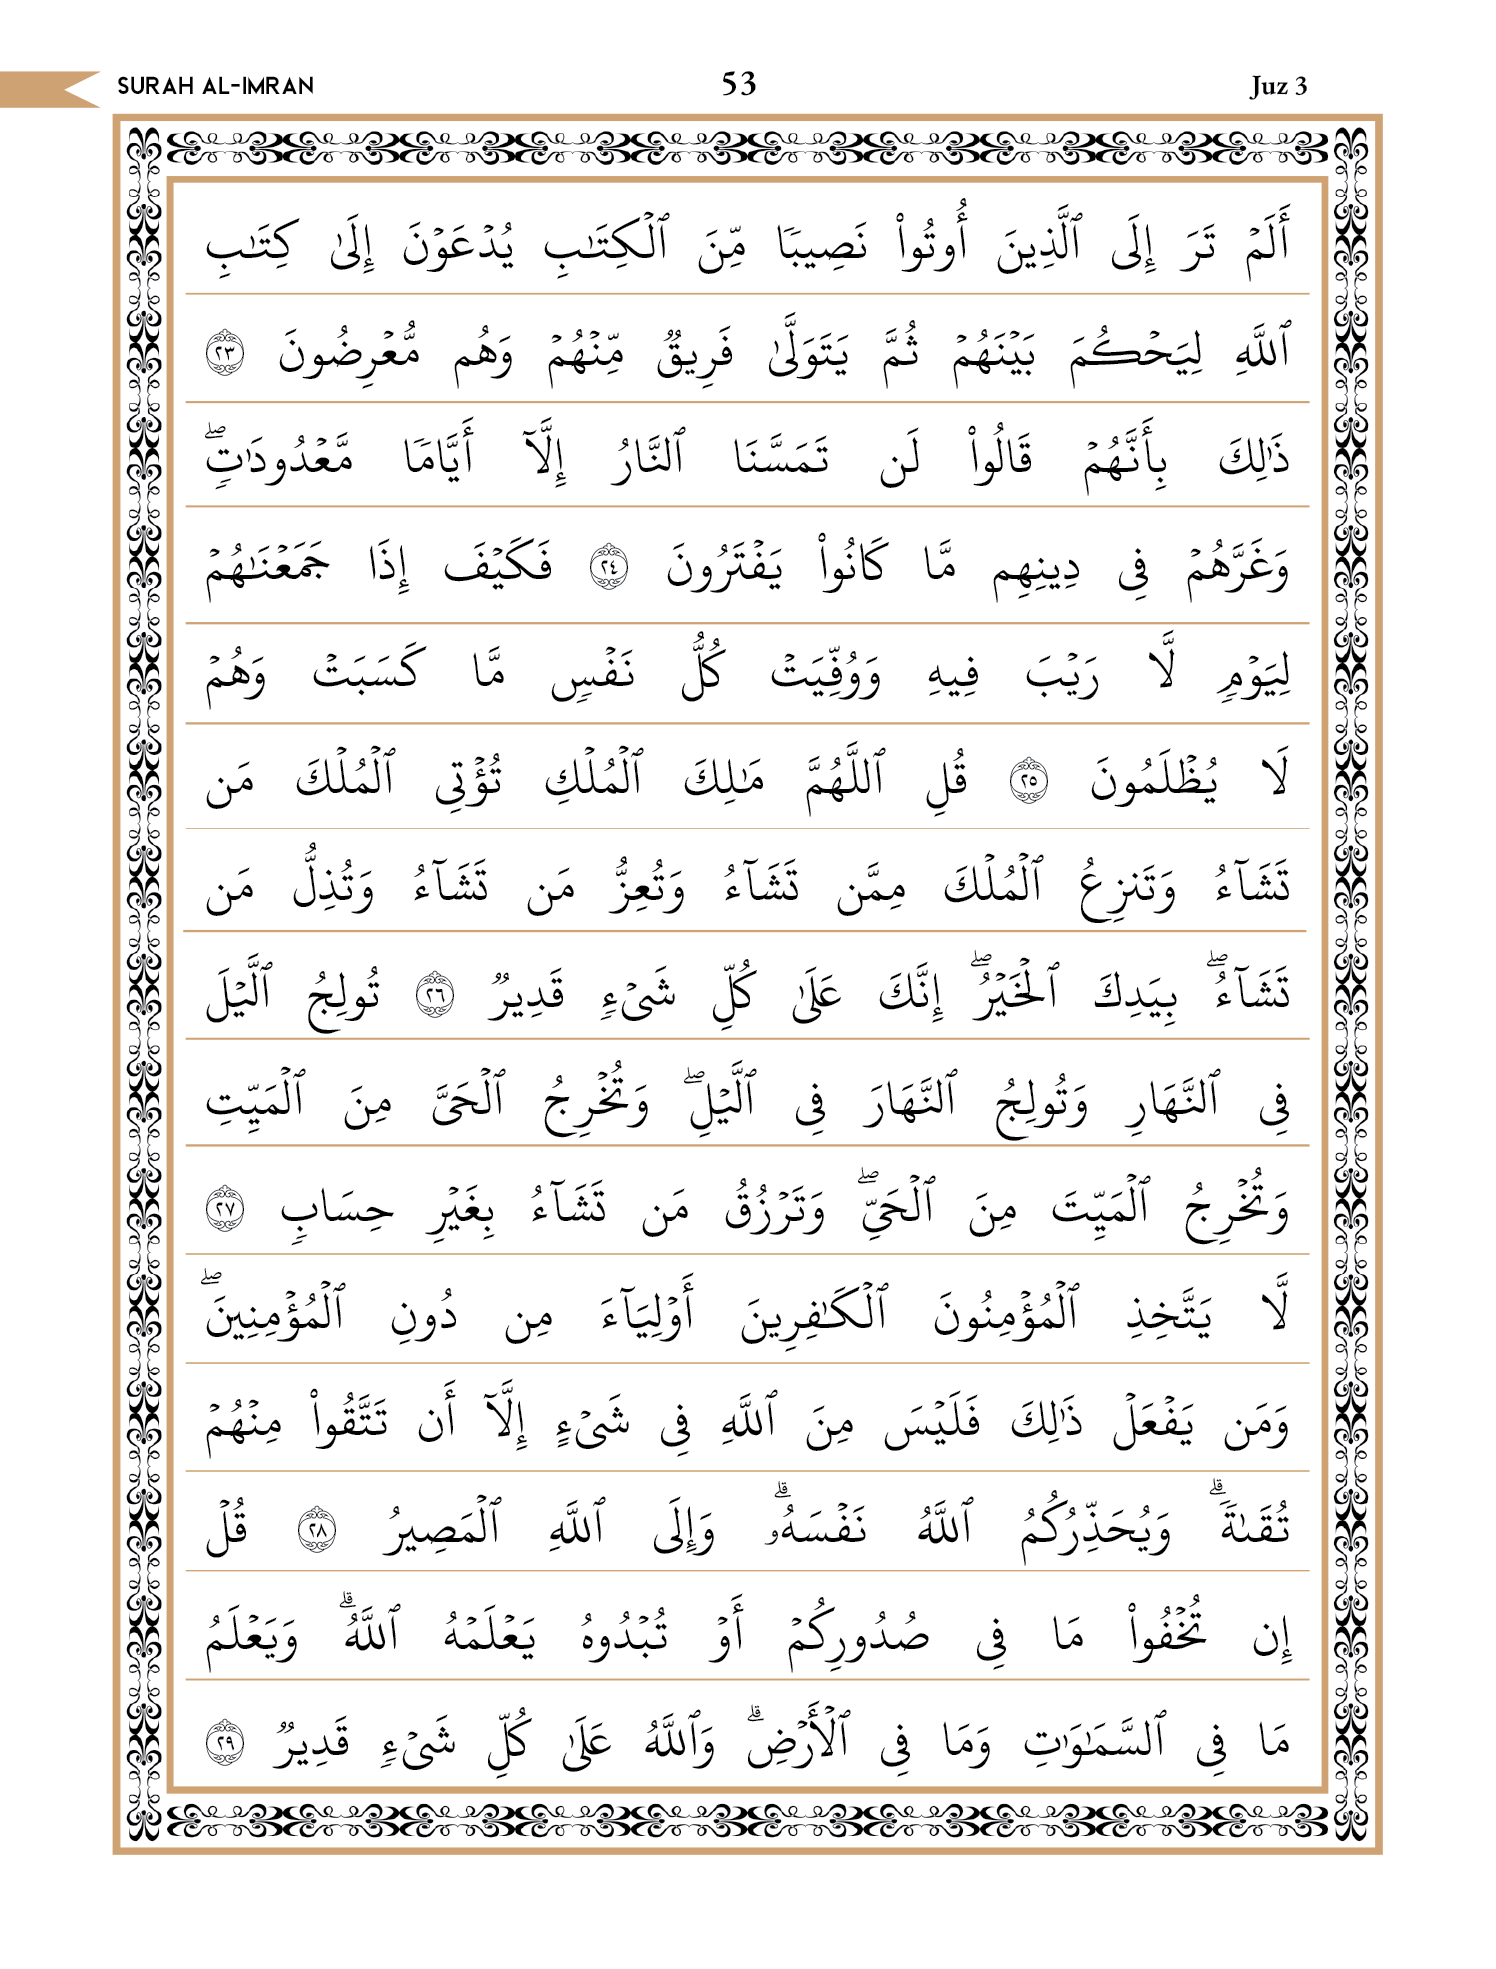 SURAH AL-IMRAN 53 Juz 3
أَلَمۡ تَرَ إِلَى ٱلَّذِينَ أُوتُواْ نَصِيبٗا مِّنَ ٱلۡكِتَٰبِ يُدۡعَوۡنَ إِلَىٰ كِتَٰبِ
ٱللَّهِ لِيَحۡكُمَ بَيۡنَهُمۡ ثُمَّ يَتَوَلَّىٰ فَرِيقٞ مِّنۡهُمۡ وَهُم مُّعۡرِضُونَ ٢٣
ذَٰلِكَ بِأَنَّهُمۡ قَالُواْ لَن تَمَسَّنَا ٱلنَّارُ إِلَّآ أَيَّامٗا مَّعۡدُودَٰتٖۖ
وَغَرَّهُمۡ فِي دِينِهِم مَّا كَانُواْ يَفۡتَرُونَ ٢٤ فَكَيۡفَ إِذَا جَمَعۡنَٰهُمۡ
لِيَوۡمٖ لَّا رَيۡبَ فِيهِ وَوُفِّيَتۡ كُلُّ نَفۡسٖ مَّا كَسَبَتۡ وَهُمۡ
لَا يُظۡلَمُونَ ٢٥ قُلِ ٱللَّهُمَّ مَٰلِكَ ٱلۡمُلۡكِ تُؤۡتِي ٱلۡمُلۡكَ مَن
تَشَآءُ وَتَنزِعُ ٱلۡمُلۡكَ مِمَّن تَشَآءُ وَتُعِزُّ مَن تَشَآءُ وَتُذِلُّ مَن
تَشَآءُۖ بِيَدِكَ ٱلۡخَيۡرُۖ إِنَّكَ عَلَىٰ كُلِّ شَيۡءٖ قَدِيرٞ ٢٦ تُولِجُ ٱلَّيۡلَ
فِي ٱلنَّهَارِ وَتُولِجُ ٱلنَّهَارَ فِي ٱلَّيۡلِۖ وَتُخۡرِجُ ٱلۡحَيَّ مِنَ ٱلۡمَيِّتِ
وَتُخۡرِجُ ٱلۡمَيِّتَ مِنَ ٱلۡحَيِّۖ وَتَرۡزُقُ مَن تَشَآءُ بِغَيۡرِ حِسَابٖ ٢٧
لَّا يَتَّخِذِ ٱلۡمُؤۡمِنُونَ ٱلۡكَٰفِرِينَ أَوۡلِيَآءَ مِن دُونِ ٱلۡمُؤۡمِنِينَۖ
وَمَن يَفۡعَلۡ ذَٰلِكَ فَلَيۡسَ مِنَ ٱللَّهِ فِي شَيۡءٍ إِلَّآ أَن تَتَّقُواْ مِنۡهُمۡ
تُقَىٰةٗۗ وَيُحَذِّرُكُمُ ٱللَّهُ نَفۡسَهُۥۗ وَإِلَى ٱللَّهِ ٱلۡمَصِيرُ ٢٨ قُلۡ
إِن تُخۡفُواْ مَا فِي صُدُورِكُمۡ أَوۡ تُبۡدُوهُ يَعۡلَمۡهُ ٱللَّهُۗ وَيَعۡلَمُ
مَا فِي ٱلسَّمَٰوَٰتِ وَمَا فِي ٱلۡأَرۡضِۗ وَٱللَّهُ عَلَىٰ كُلِّ شَيۡءٖ قَدِيرٞ ٢٩